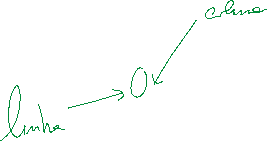 coluna
0
linha